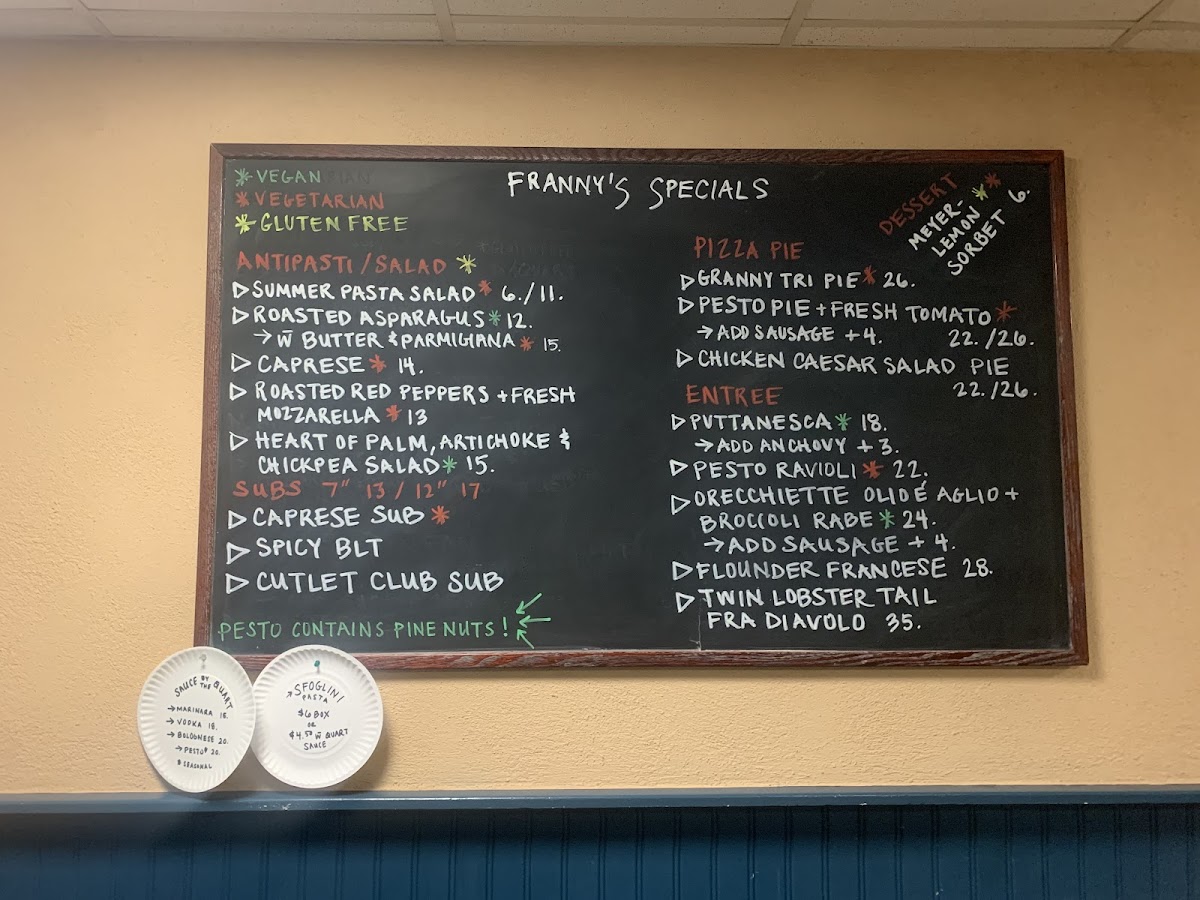 FRANNY'S SPECIALS
* VEGAN
* VEGETARIAN
* GLUTEN FREE
ANTIPASTI / SALAD *
▷ SUMMER PASTA SALAD * 6. / 11.
▷ ROASTED ASPARAGUS * 12.
→ W̅ BUTTER & PARMIGIANA * 15.
▷ CAPRESE * 14.
▷ ROASTED RED PEPPERS + FRESH
MOZZARELLA * 13
▷ HEART OF PALM, ARTICHOKE &
CHICKPEA SALAD * 15.
SUBS 7" 13 / 12" 17
▷ CAPRESE SUB *
▷ SPICY BLT
▷ CUTLET CLUB SUB
PESTO CONTAINS PINE NUTS!
DESSERT
MEYER-
LEMON * *
SORBET 6.
PIZZA PIE
▷ GRANNY TRI PIE * 26.
▷ PESTO PIE + FRESH TOMATO *
→ ADD SAUSAGE + 4. 22. / 26.
▷ CHICKEN CAESAR SALAD PIE
22. / 26.
ENTREE
▷ PUTTANESCA * 18.
→ ADD ANCHOVY + 3.
▷ PESTO RAVIOLI * 22.
▷ ORECCHIETTE OLIO É AGLIO +
BROCCOLI RABE * 24.
→ ADD SAUSAGE + 4.
▷ FLOUNDER FRANCESE 28.
▷ TWIN LOBSTER TAIL
FRA DIAVOLO 35.
SAUCE BY THE QUART
→ MARINARA 18.
→ VODKA 18.
→ BOLOGNESE 20.
→ PESTO* 20.
* SEASONAL
→ SFOGLINI
PASTA
$6 BOX
OR
$4.50 W̅ QUART
SAUCE